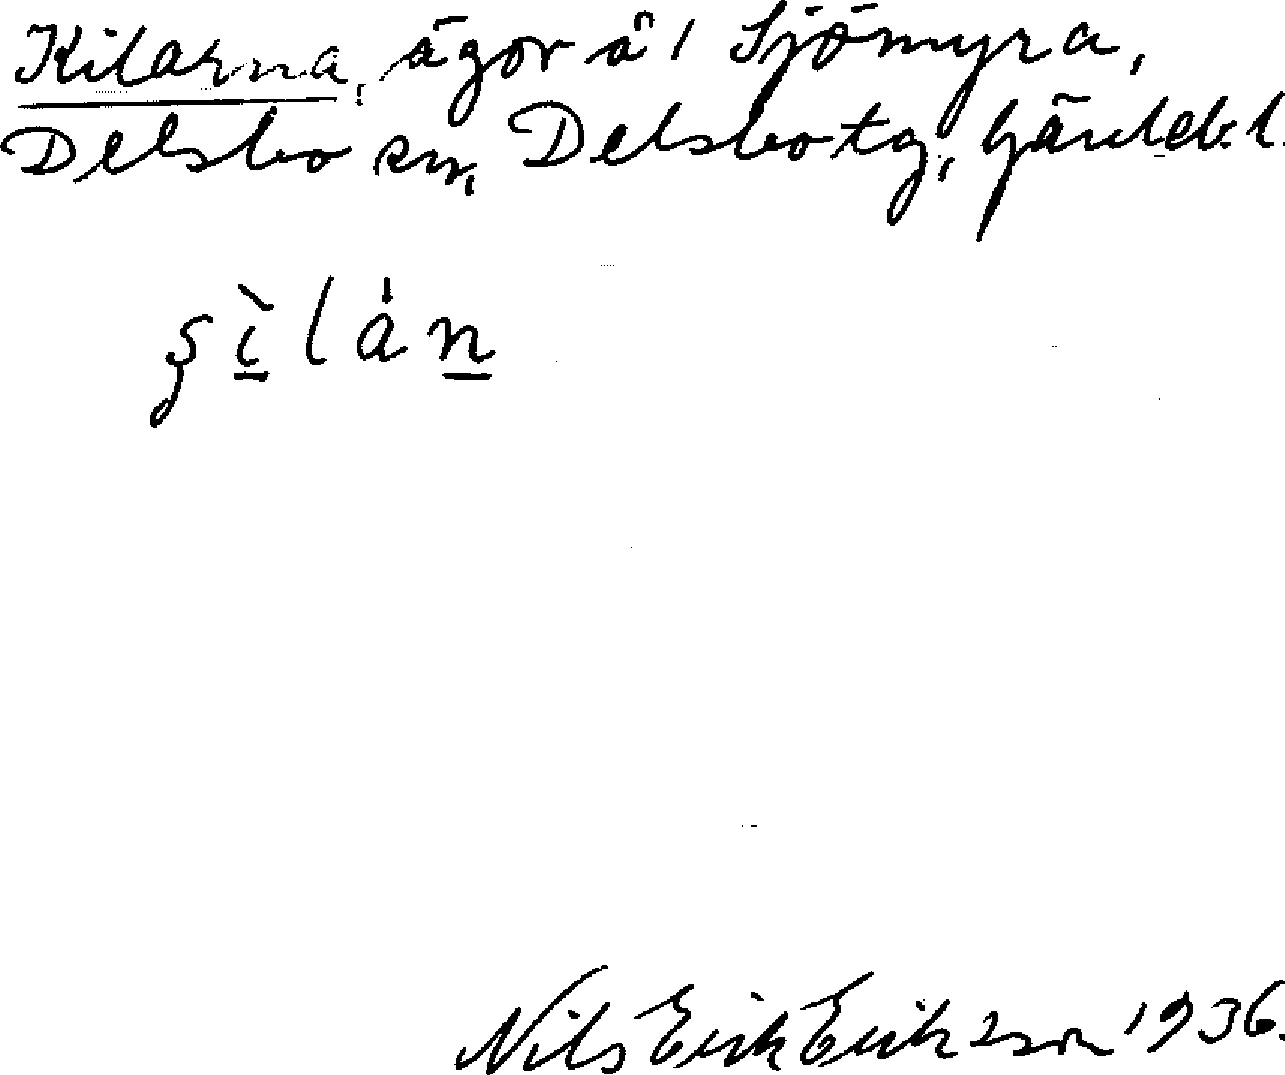 Kilarna, ägor å 1 Sjömyra,
Delsbo sn, Delsbo tg,
Nils Erik Erikzson 1936.